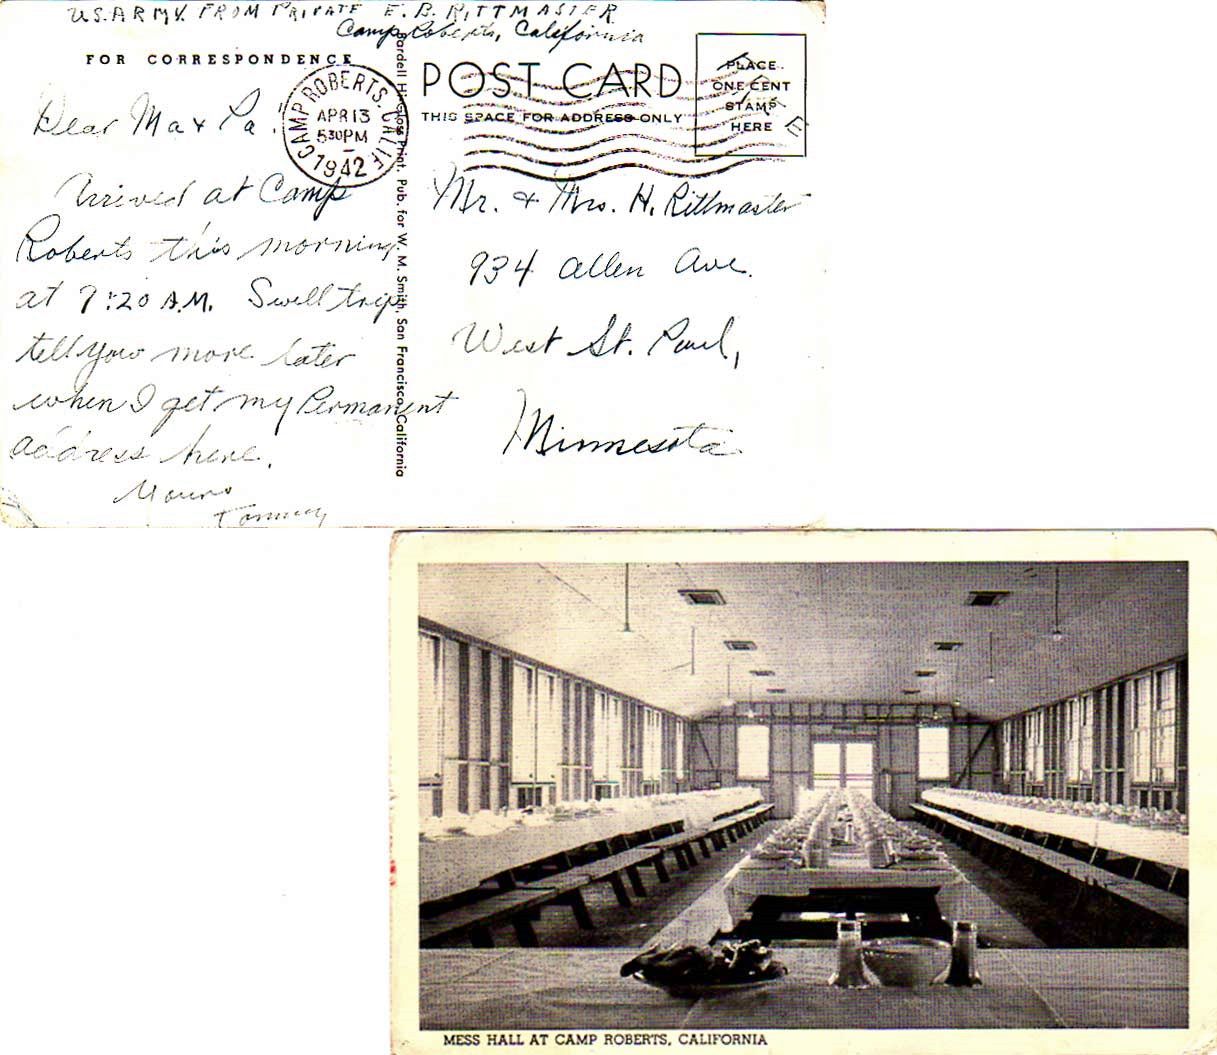 U.S. ARMY. FROM PRIVATE E. B. RITTMASTER
Camp Roberts, California
FOR CORRESPONDENCE
Dear Ma & Pa:
Arrived at Camp
Roberts this morning
at 7:20 A.M. Swell trip
tell you more later
when I get my Permanent
address here.
Yours
CAMP ROBERTS. CALIF
APR 13
5 30 PM
1942
Bardell Hi-Gloss Print. Pub. for W. M. Smith, San Francisco, California
POST CARD
THIS SPACE FOR ADDRESS ONLY
PLACE
ONE CENT
STAMP
HERE
FREE
Mr. & Mrs. H. Rittmaster
934 Allen Ave.
West St. Paul,
Minnesota
MESS HALL AT CAMP ROBERTS, CALIFORNIA